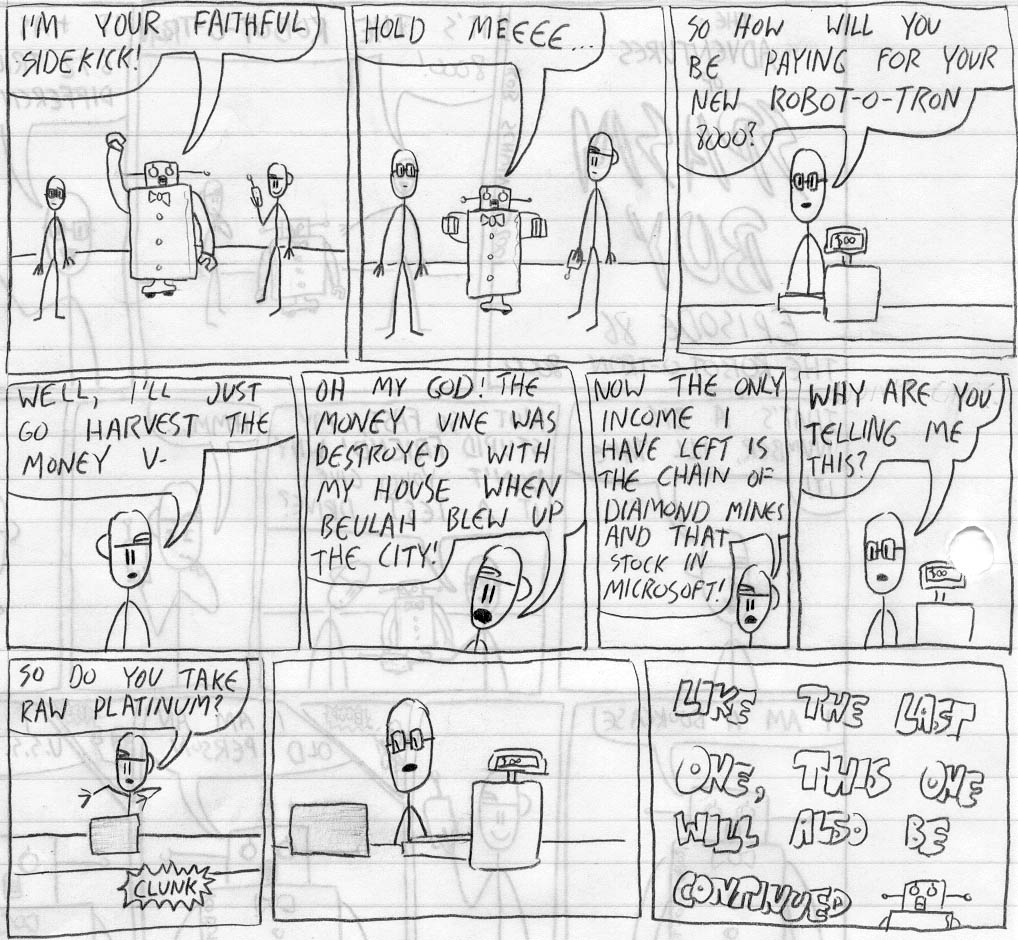 I'M YOUR FAITHFUL
SIDEKICK!
HOLD MEEEE...
SO HOW WILL YOU
BE PAYING FOR YOUR
NEW ROBOT-O-TRON
8000?
300
WELL, I'LL JUST
GO HARVEST THE
MONEY V-
OH MY GOD! THE
MONEY VINE WAS
DESTROYED WITH
MY HOUSE WHEN
BEULAH BLEW UP
THE CITY!
NOW THE ONLY
INCOME I
HAVE LEFT IS
THE CHAIN OF
DIAMOND MINES
AND THAT
STOCK IN
MICROSOFT!
WHY ARE YOU
TELLING ME
THIS?
300
SO DO YOU TAKE
RAW PLATINUM?
CLUNK
300
LIKE THE LAST
ONE, THIS ONE
WILL ALSO BE
CONTINUED